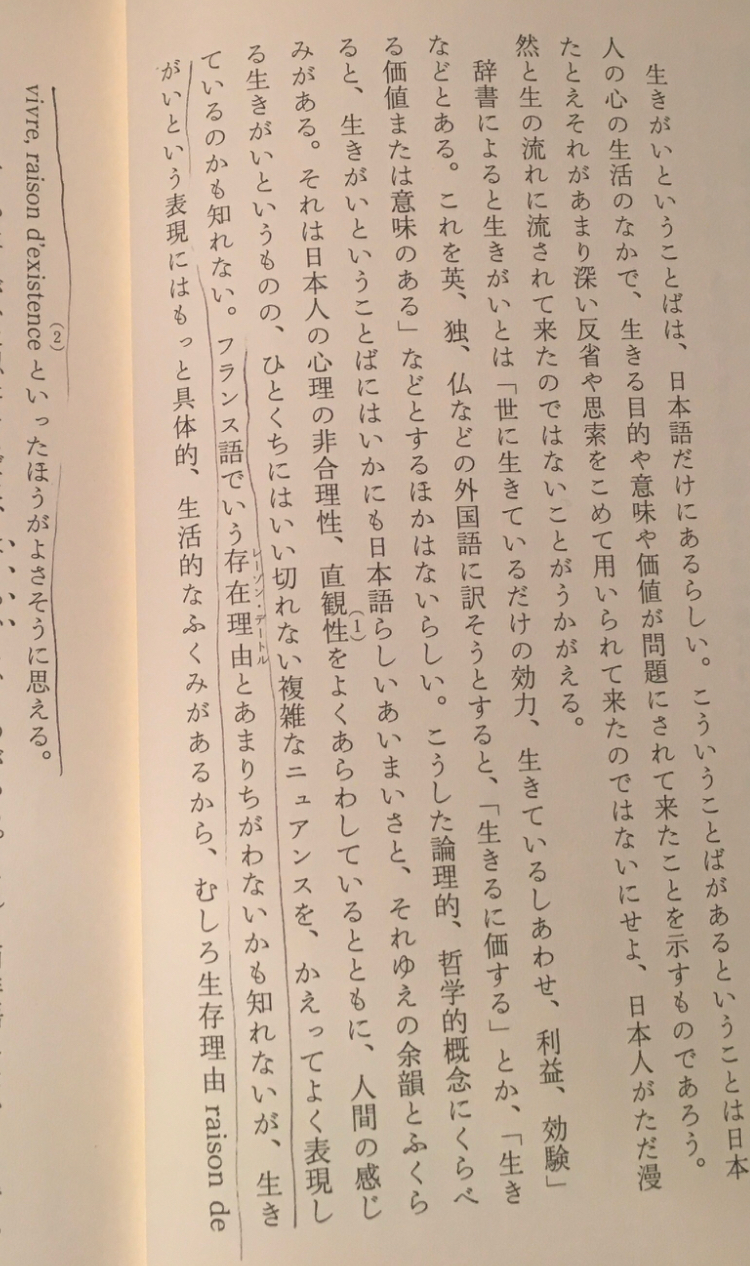 生きがいということばは、日本語だけにあるらしい。こういうことばがあるということは日本
人の心の生活のなかで、生きる目的や意味や価値が問題にされて来たことを示すものであろう。
たとえそれがあまり深い反省や思索をこめて用いられて来たのではないにせよ、日本人がただ漫
然と生の流れに流されて来たのではないことがうかがえる。
辞書によると生きがいとは「世に生きているだけの効力、生きているしあわせ、利益、効験」
などとある。これを英、独、仏などの外国語に訳そうとすると、「生きるに価する」とか、「生き
る価値または意味のある」などとするほかはないらしい。こうした論理的、哲学的概念にくらべ
ると、生きがいということばにはいかにも日本語らしいあいまいさと、それゆえの余韻とふくら
みがある。それは日本人の心理の非合理性、直観性(1)をよくあらわしているとともに、人間の感じ
る生きがいというものの、ひとくちにはいい切れない複雑なニュアンスを、かえってよく表現し
ているのかも知れない。フランス語でいう存在理由レーゾン・デートルとあまりちがわないかも知れないが、生き
がいという表現にはもっと具体的、生活的なふくみがあるから、むしろ生存理由 raison de
vivre, raison d'existence(2) といったほうがよさそうに思える。